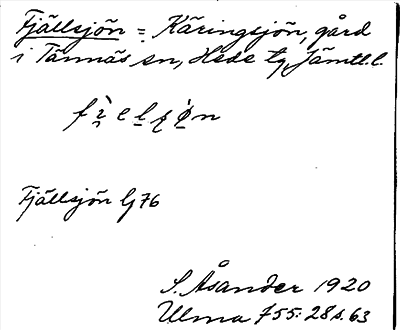 Fjällsjön = Käringsjön, gård
i Tännäs sn, Hede tg, Jämtl.l.
Fjällsjön Lj 76
S. Åsander 1920
Ulma 755: 28 s. 63